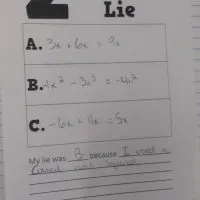 2
Lie
A. 3x + 6x = 9x
B. -1x² - 3x² = -4x²
C. -6x + 11x = 5x
My lie was B because I used a